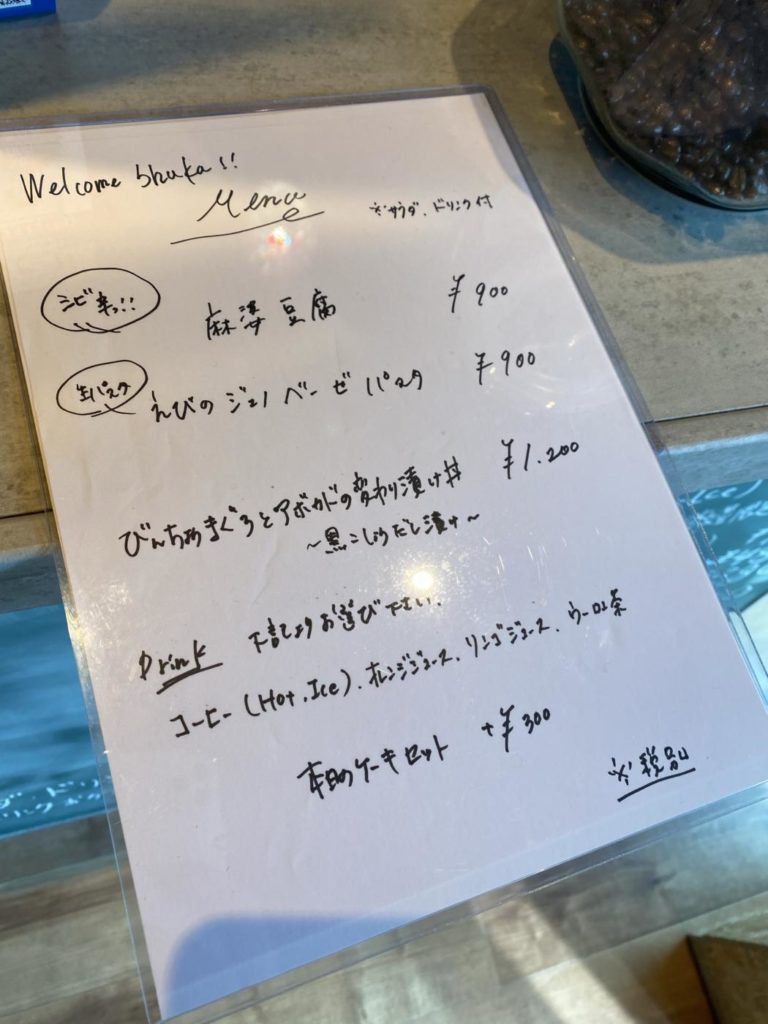 Welcome shuka!!
Menu
※サラダ、ドリンク付
シビ辛っ!! 麻婆豆腐 ¥900
生パスタ えびのジェノベーゼパスタ ¥900
びんちょうまぐろとアボカドの変わり漬け丼 ¥1.200
～黒こしょうだし漬け～
Drink 下記よりお選び下さい.
コーヒー(Hot,Ice)、オレンジジュース、リンゴジュース、ウーロン茶
本日のケーキセット +¥300
※税別